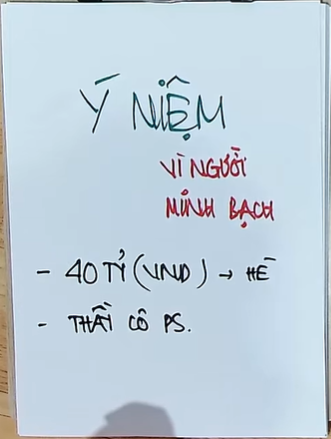 Ý NIỆM
VÌ NGƯỜI
MINH BẠCH
- 40 TỶ (VND) → HÈ
- THẦY CÔ PS.